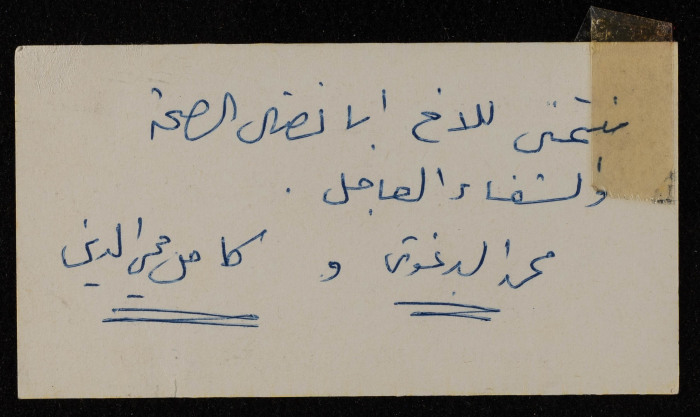 نتمنى للاخ ابا نضال الصحة
والشفاء العاجل .
محمد البرغوثي و كامل محي الدين